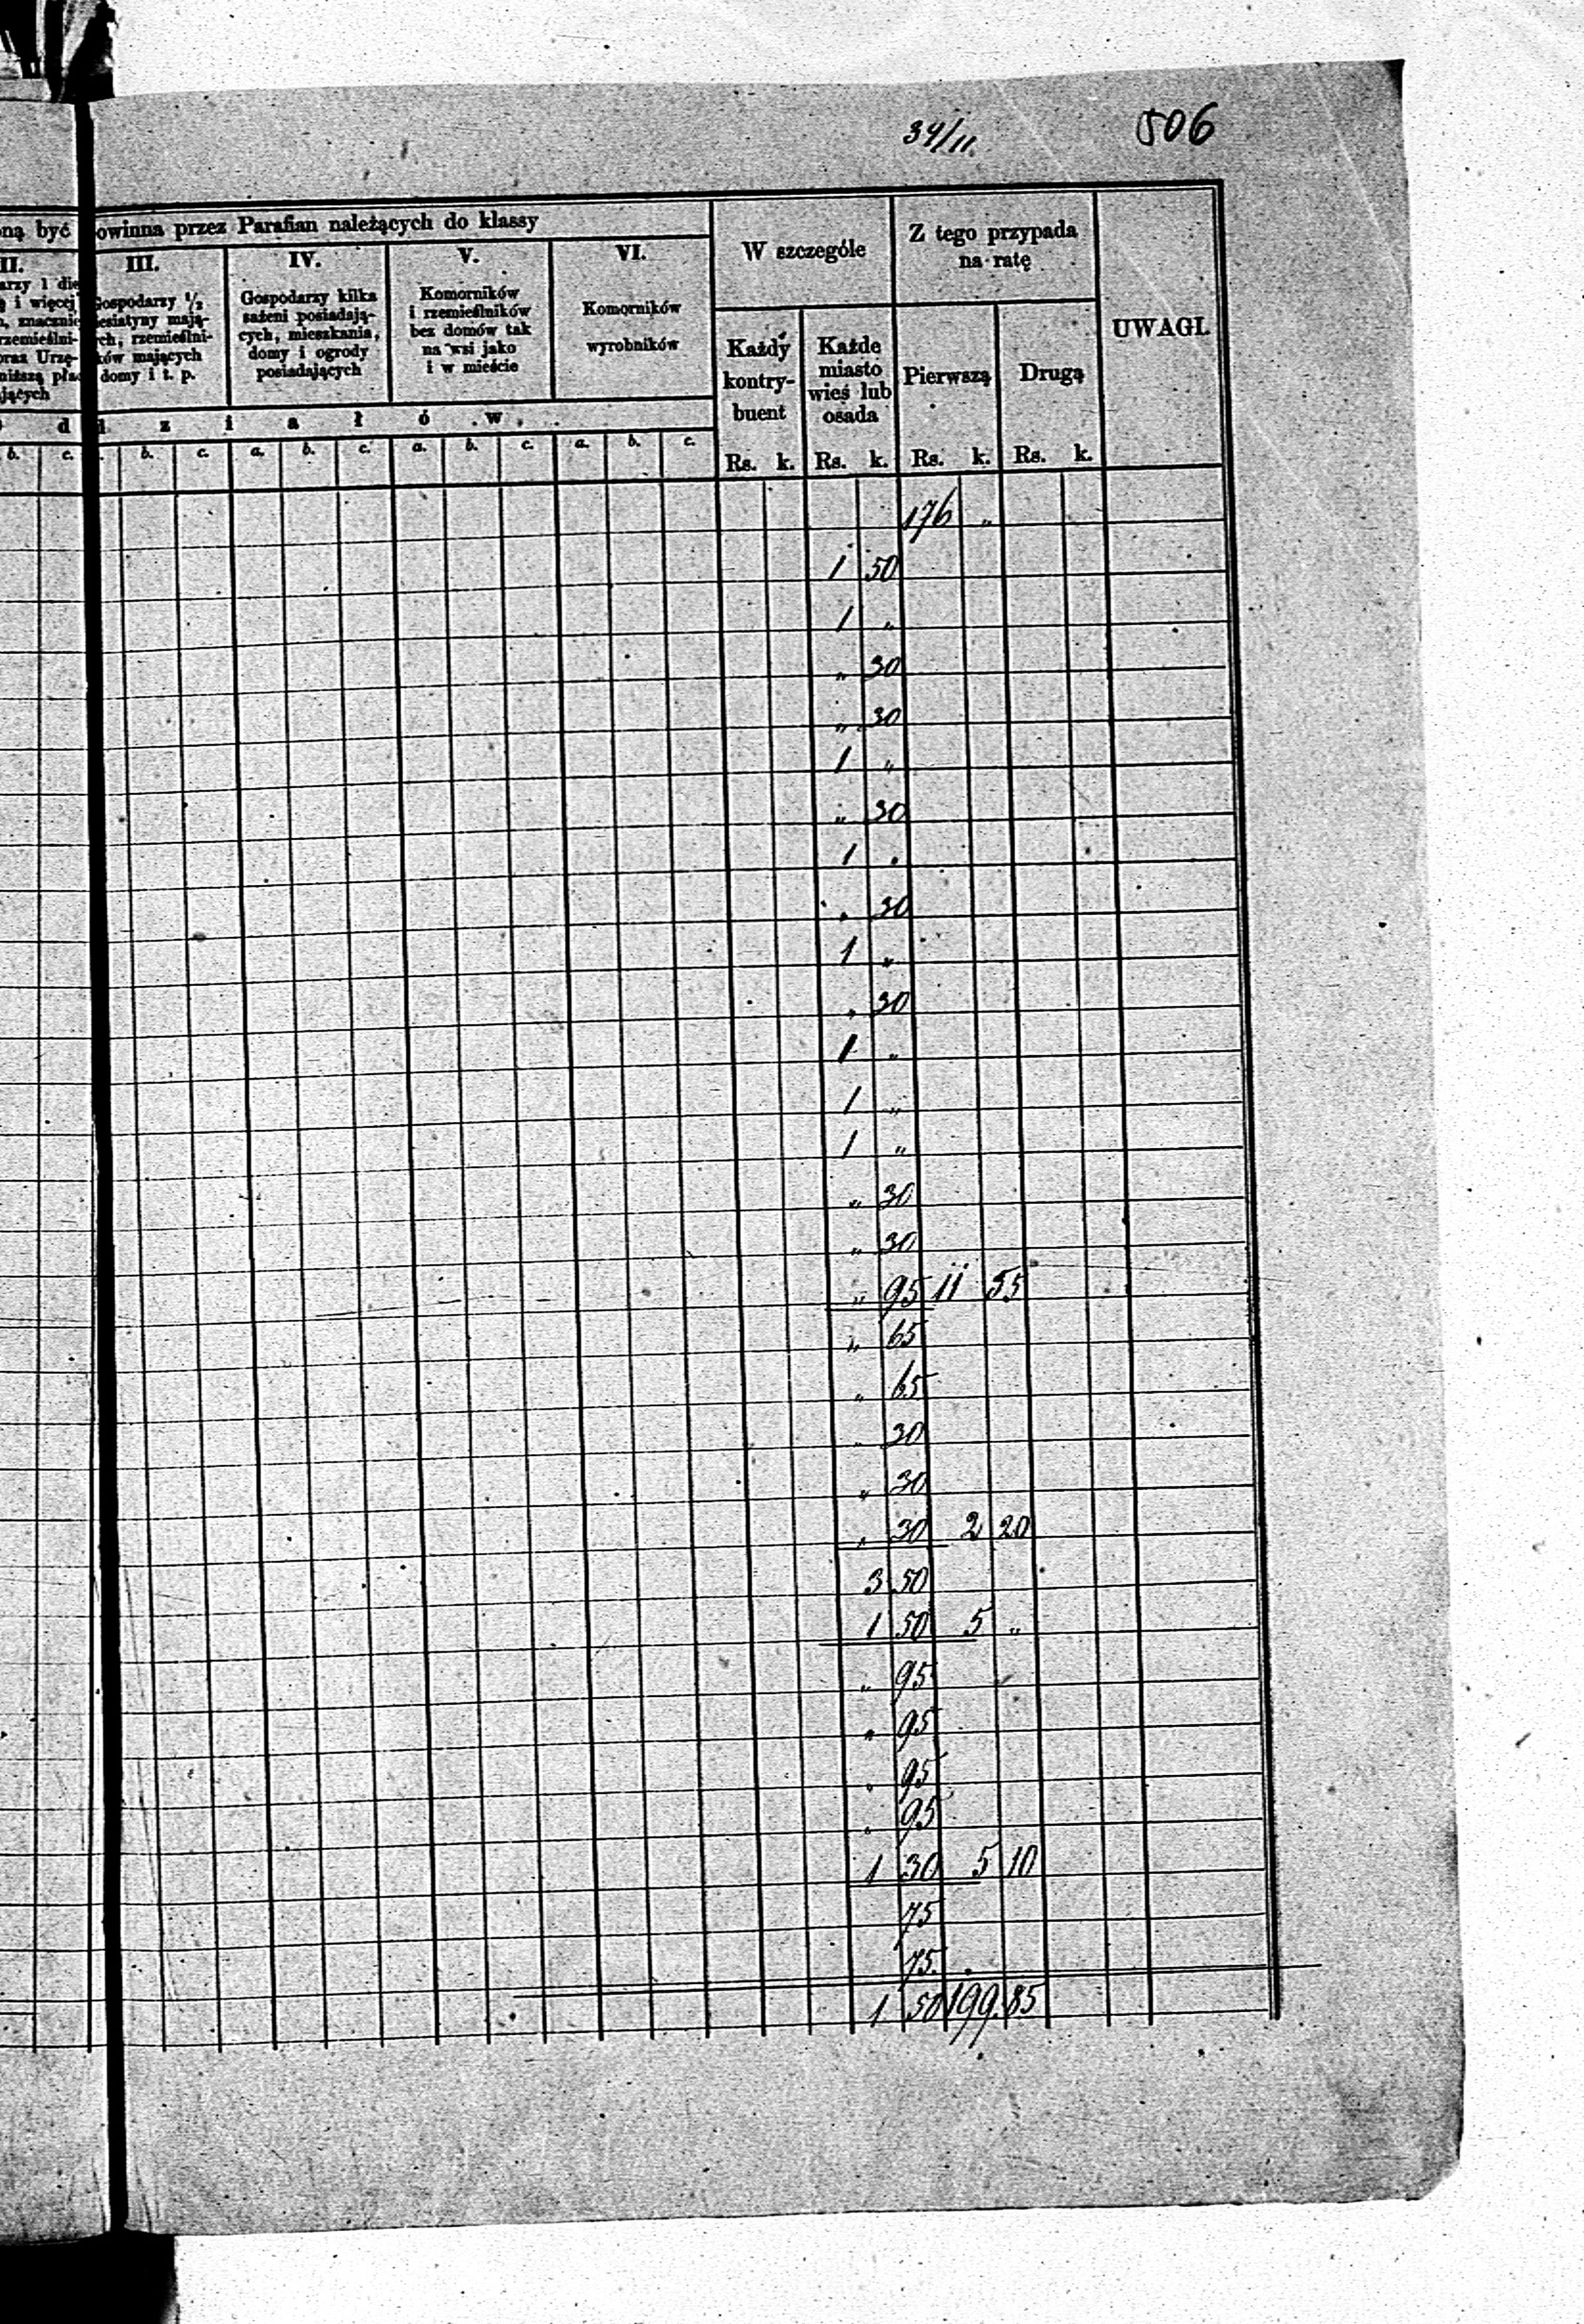 34/11.
506
ną być owinna przez Parafian należących do klassy
W szczególe
Z tego przypada na ratę
UWAGI.
II.
III.
IV.
V.
VI.
arzy 1 die
i więcej
znacznie
rzemieślni-
oraz Urzę-
niższą płac
jących
Gospodarzy 1/2
esiatyny mają-
ch, rzemieślni-
ków mających
domy i t. p.
Gospodarzy kilka
sażeni posiadają-
cych, mieszkania,
domy i ogrody
posiadających
Komorników
i rzemieślników
bez domów tak
na wsi jako
i w mieście
Komorników
wyrobników
Każdy
kontry-
buent
Każde
miasto
wieś lub
osada
Pierwszą
Drugą
d z i a ł ó w.
b. c. b. c. a. b. c. a. b. c. a. b. c.
Rs. k. Rs. k. Rs. k. Rs. k.
176 "
1 50
1 "
" 30
" 30
1 "
" 30
1 "
" 30
1 "
" 30
1 "
1 "
1 "
" 30
" 30
" 95 11 55
" 65
" 65
" 30
" 30
" 30 2 20
3 50
1 50 5 "
" 95
" 95
" 95
" 95
1 30 5 10
75
75.
1 50 199.85